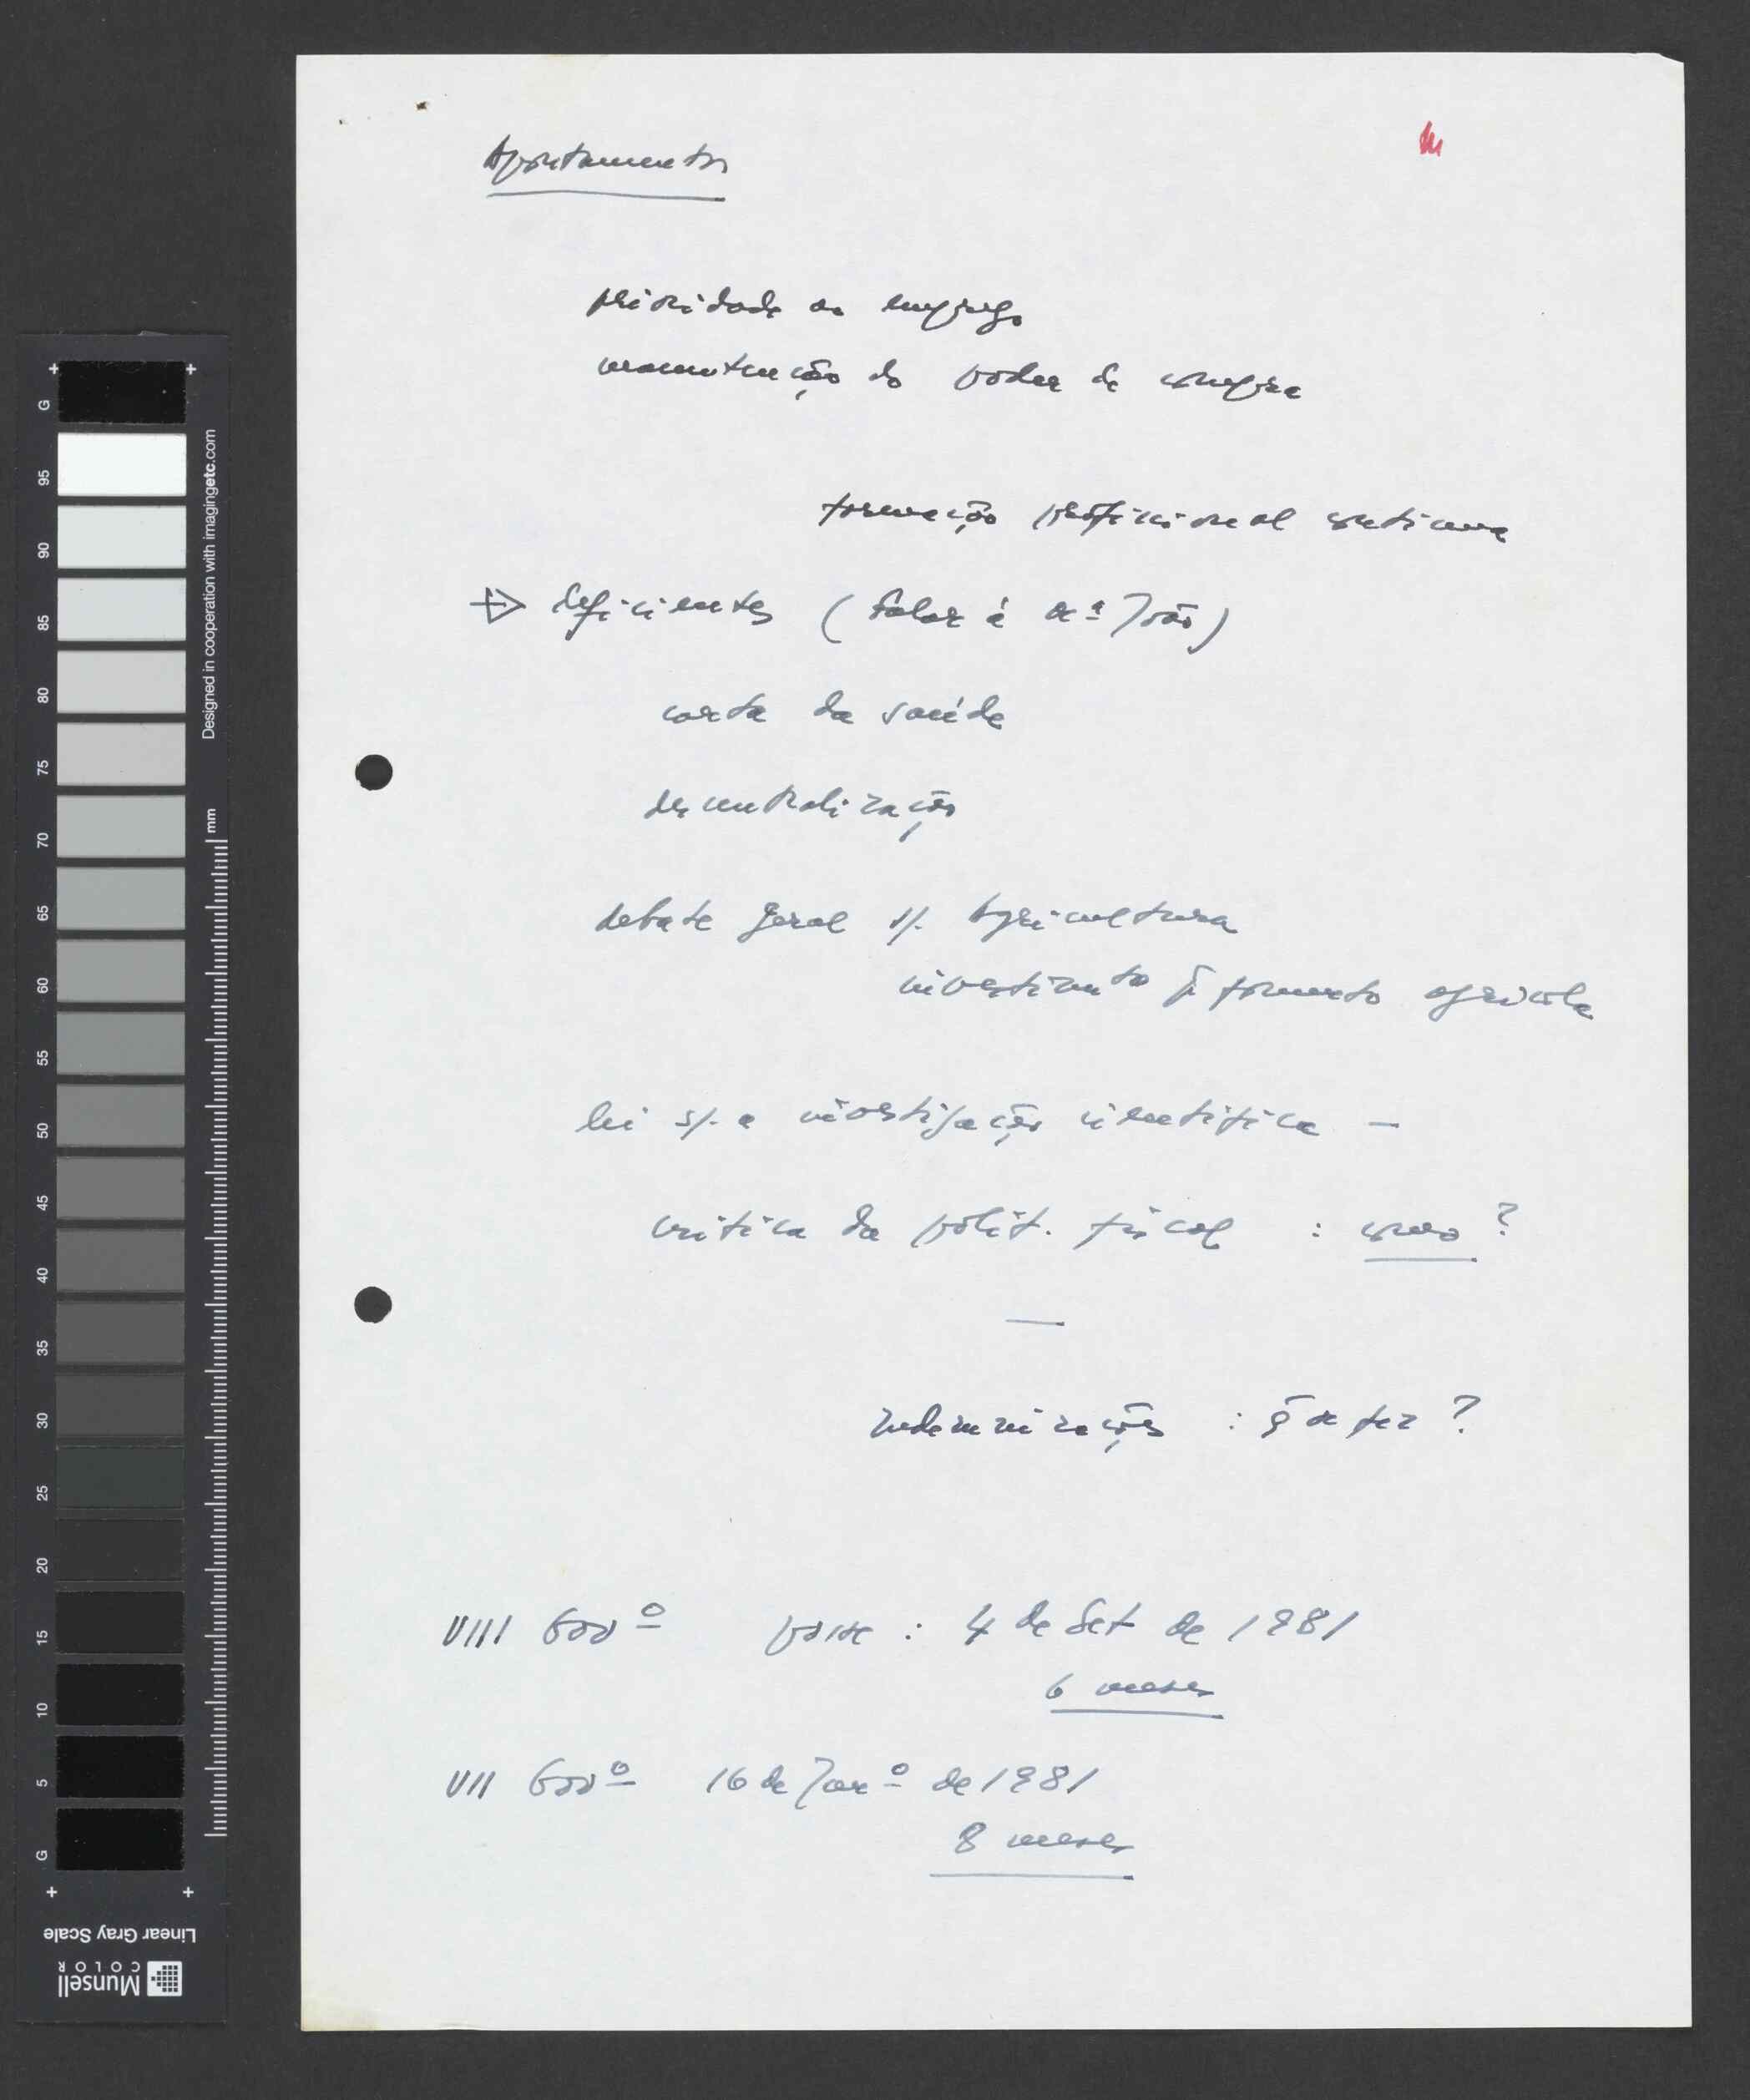 Apontamentos
prioridade ao emprego
manutenção do poder de compra
formação profissional contínua
deficientes (falar à Mª João)
carta da saúde
descentralização
debate geral s/. Agricultura
investimento p. fomento agrícola
lei s/. a investigação científica —
crítica da polít. fiscal : como ?
indemnizações : q̃ se fez ?
VIII Govº posse : 4 de Set de 1981
6 meses
VII Govº 16 de Janº de 1981
8 meses
G 95 90 85 80 75 70 65 60 55 50 45 40 35 30 25 20 15 10 5 G
Designed in cooperation with imagingetc.com
mm
Linear Gray Scale
Munsell
COLOR